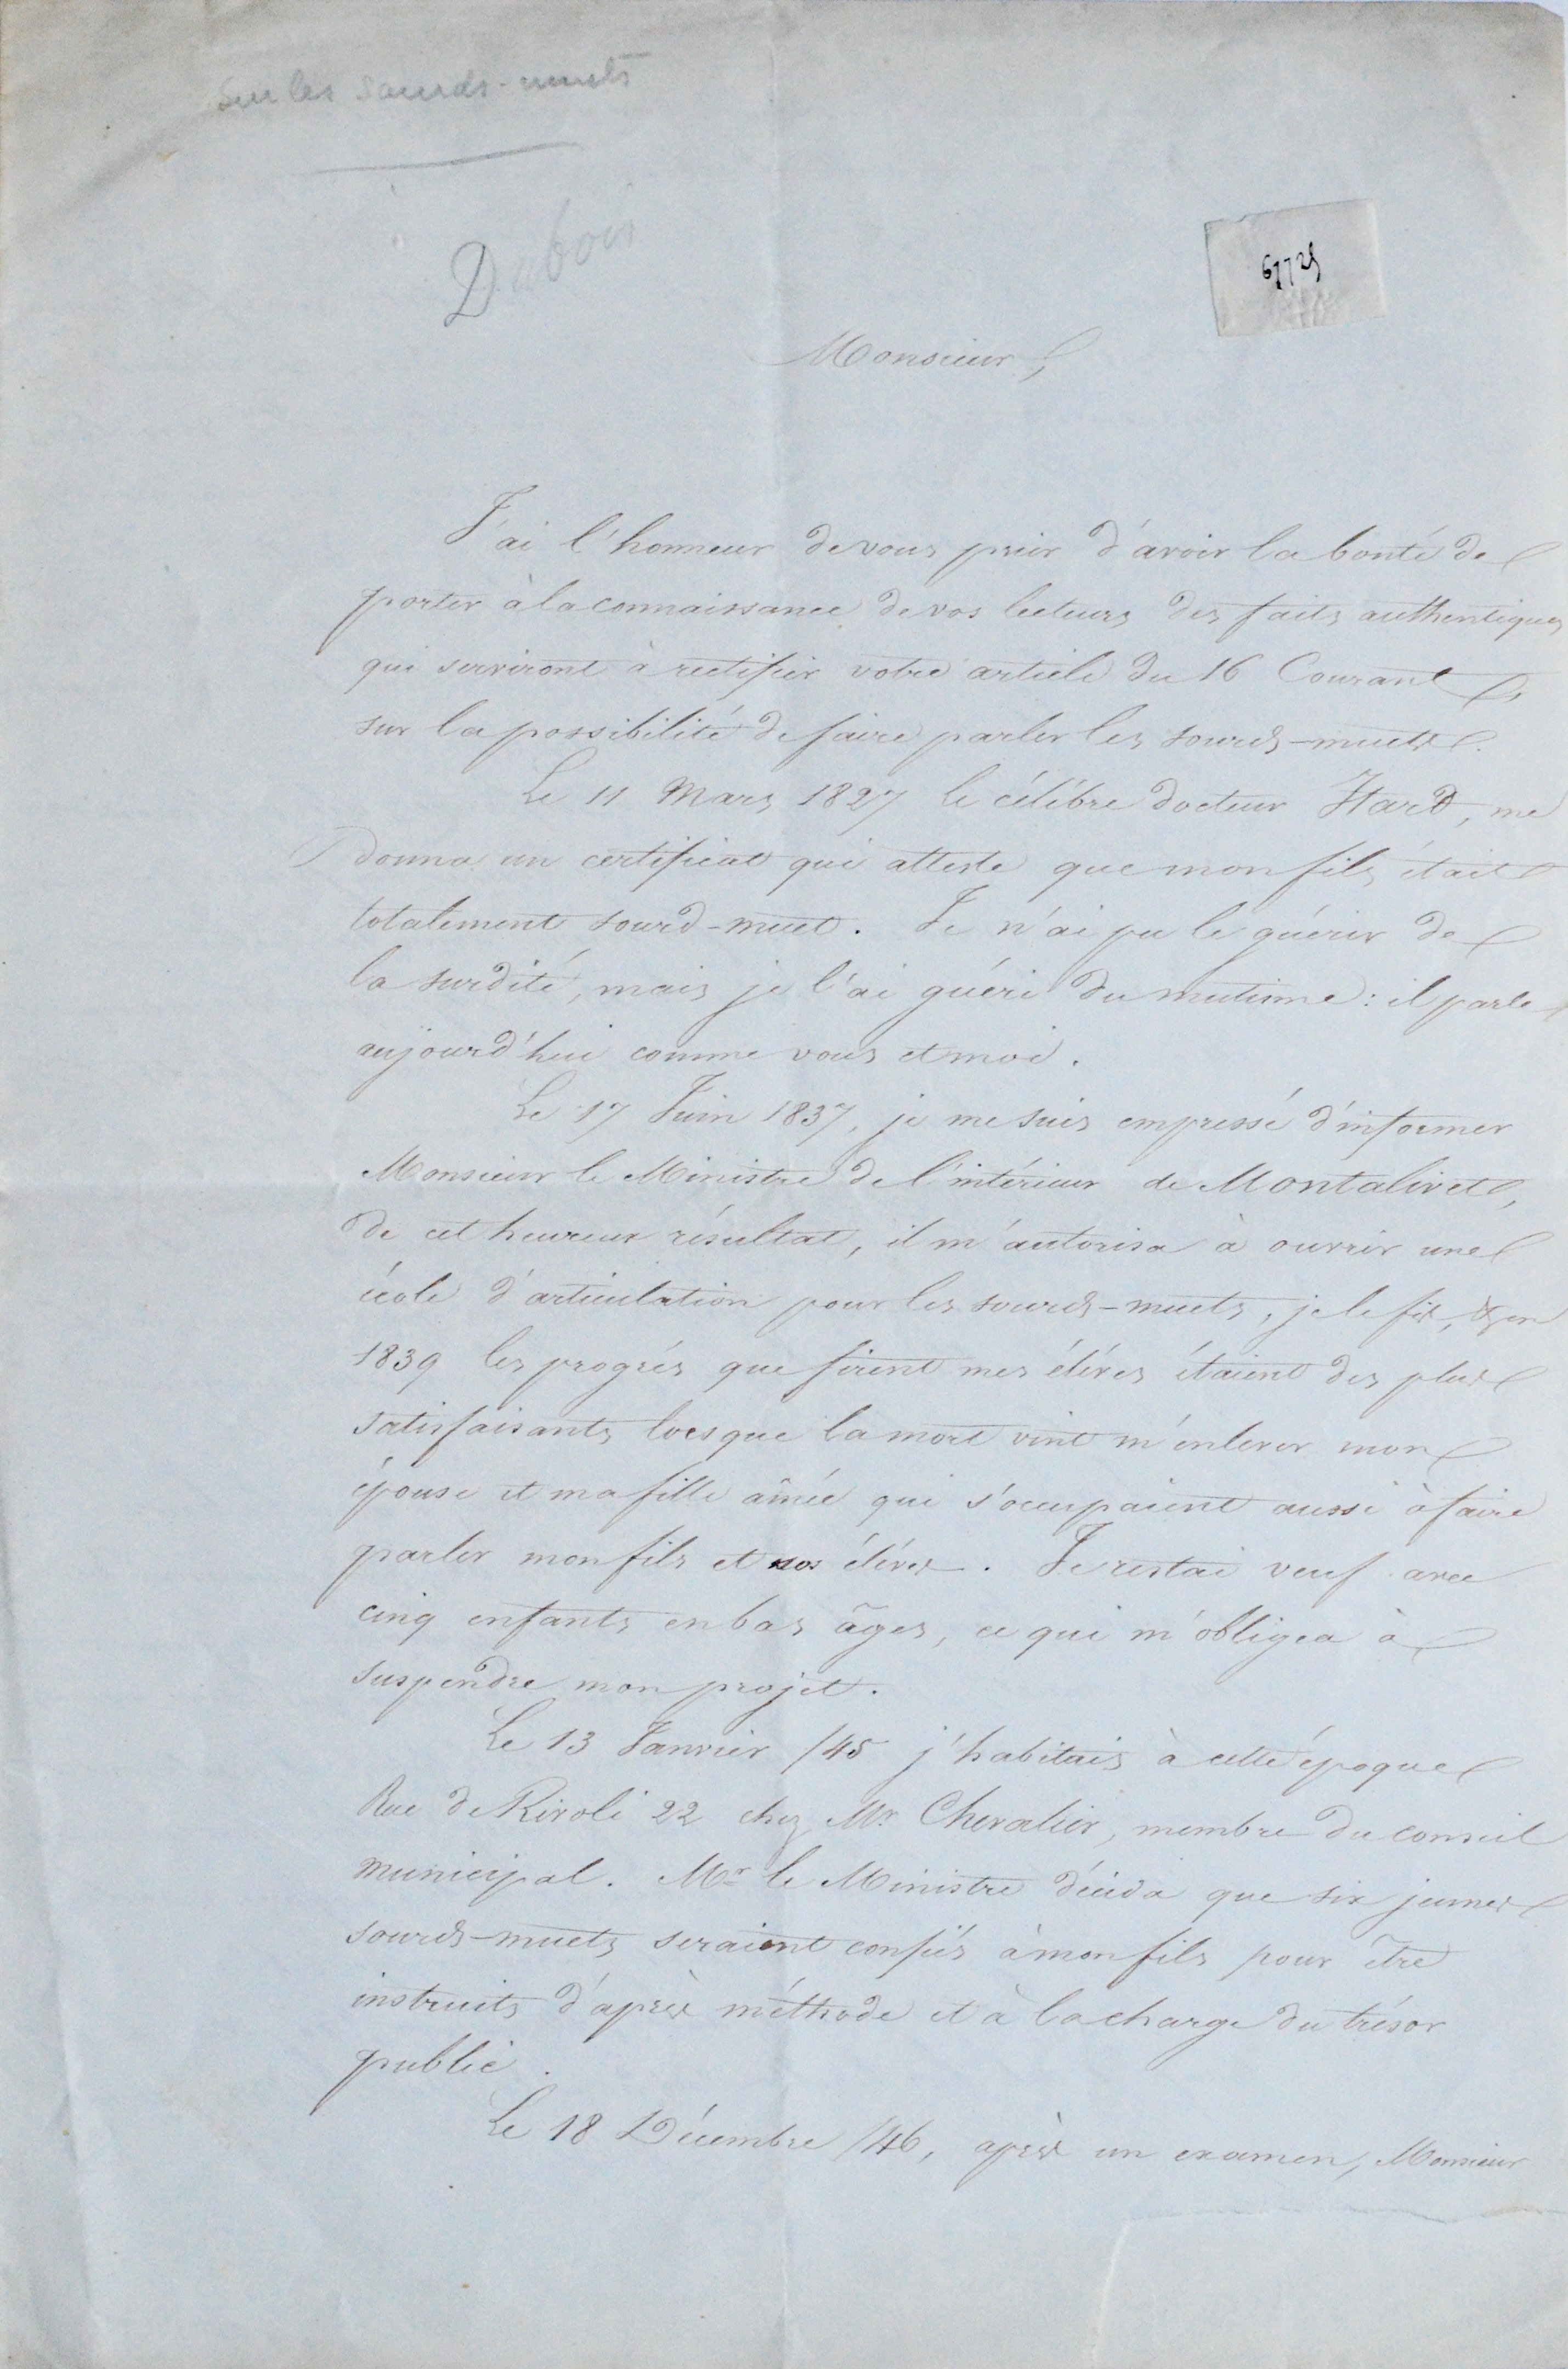 Sur les sourds-muets
Dubois
Monsieur,
J'ai l'honneur de vous prier d'avoir la bonté de
porter à la connaissance de vos lecteurs des faits authentiques
qui serviront à rectifier votre article du 16 Courant,
sur la possibilité de faire parler les sourds-muets.
Le 11 Mars 1827 le célèbre docteur Itard, me
donna un certificat qui atteste que mon fils était
totalement sourd-muet. Je n'ai pu le guérir de
la surdité, mais je l'ai guéri du mutisme : il parle
aujourd'hui comme vous et moi.
Le 17 Juin 1837, je me suis empressé d'informer
Monsieur le Ministre de l'intérieur de Montalivet,
de cet heureux résultat, il m'autorisa à ouvrir une
école d'articulation pour les sourds-muets, je le fis, & en
1839 les progrès que firent mes élèves étaient des plus
satisfaisants, lorsque la mort vint m'enlever mon
épouse et ma fille aînée qui s'occupaient aussi à faire
parler mon fils et nos élèves. Je restai veuf avec
cinq enfants en bas âges, ce qui m'obligea à
suspendre mon projet.
Le 13 Janvier /45 j'habitais à cette époque
Rue de Rivoli 22 chez Mr. Chevalier, membre du conseil
municipal. Mr le Ministre décida que six jeunes
sourds-muets seraient confiés à mon fils pour être
instruits d'après méthode et à la charge du trésor
public.
Le 18 Décembre /46, après un examen, Monsieur